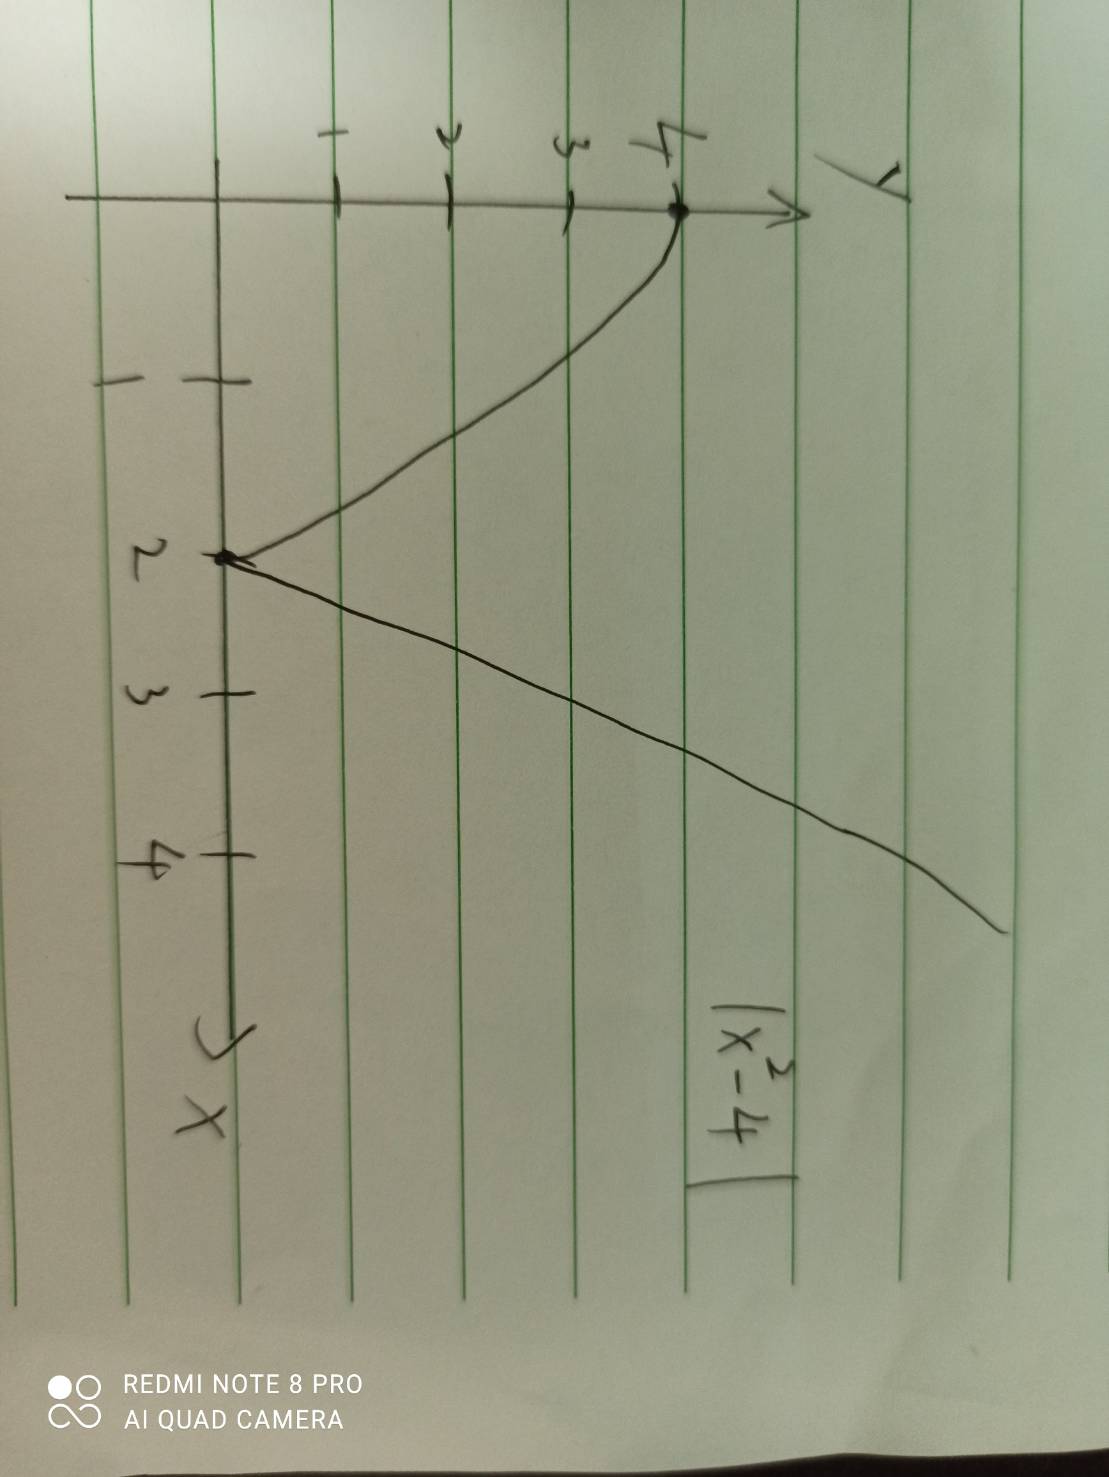 y
4
3
2
1
1 2 3 4 x
|x²-4|
REDMI NOTE 8 PRO
AI QUAD CAMERA